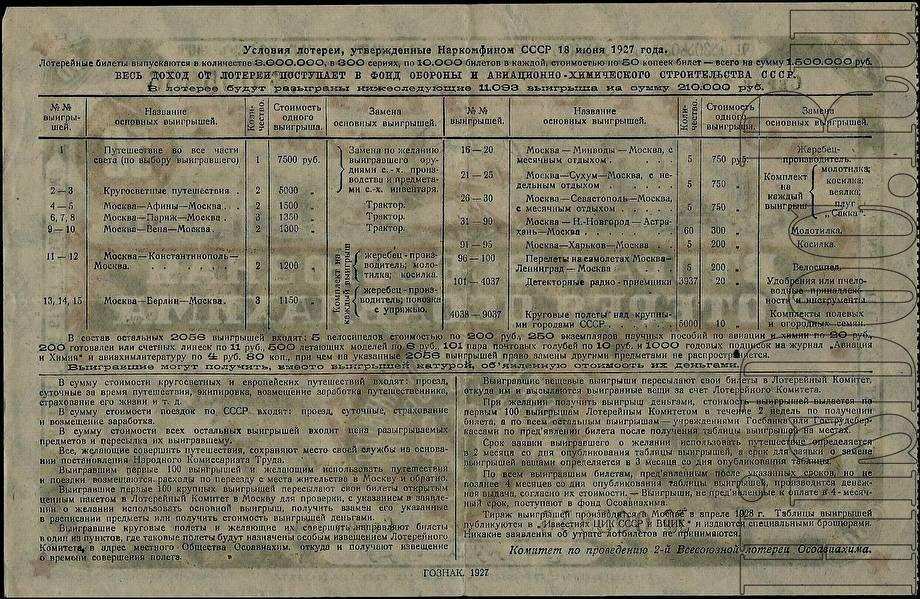 Условия лотереи, утвержденные Наркомфином СССР 18 июня 1927 года.
Лотерейные билеты выпускаются в количестве 3.000.000, в 300 сериях, по 10.000 билетов в каждой, стоимостью по 50 копеек билет — всего на сумму 1.500.000 руб.
ВЕСЬ ДОХОД ОТ ЛОТЕРЕИ ПОСТУПАЕТ В ФОНД ОБОРОНЫ И АВИАЦИОННО-ХИМИЧЕСКОГО СТРОИТЕЛЬСТВА СССР.
В лотерее будут разыграны нижеследующие 11.093 выигрыша на сумму 210.000 руб.
№№ выигрышей. Название основных выигрышей. Количество. Стоимость одного выигрыша. Замена основных выигрышей.
1 Путешествие во все части света (по выбору выигравшего) 1 7500 руб.
2—3 Кругосветные путешествия 2 5000 „
Замена по желанию выигравшего орудиями с.-х. производства и предметами с.-х. инвентаря.
4—5 Москва—Афины—Москва 2 1500 „ Трактор.
6, 7, 8 Москва—Париж—Москва 3 1350 „ Трактор.
9—10 Москва—Вена—Москва 2 1300 „ Трактор.
11—12 Москва—Константинополь—Москва 2 1200 „ жеребец-производитель; молотилка; косилка.
13, 14, 15 Москва—Берлин—Москва 3 1150 „ жеребец-производитель; повозка с упряжью.
Комплект на каждый выигрыш
№№ выигрышей. Название основных выигрышей. Количество. Стоимость одного выигрыша. Замена основных выигрышей.
16—20 Москва—Минводы—Москва, с месячным отдыхом 5 750 руб. Жеребец-производитель.
21—25 Москва—Сухум—Москва, с недельным отдыхом 5 750 „
26—30 Москва—Севастополь—Москва, с месячным отдыхом 5 750 „
Комплект на каждый выигрыш молотилка; косилка; веялка; плуг „Сакка".
31—90 Москва—Н.-Новгород—Астрахань—Москва 60 300 „ Молотилка.
91—95 Москва—Харьков—Москва 5 200 „ Косилка.
96—100 Перелеты на самолетах Москва—Ленинград—Москва 5 200 „ Велосипед.
101—4037 Детекторные радио-приемники 3937 20 „ Удобрения или пчеловодные принадлежности и инструменты.
4038—9037 Круговые полеты над крупными городами СССР 5000 10 „ Комплекты полевых и огородных семян.
В состав остальных 2056 выигрышей входят: 5 велосипедов стоимостью по 200 руб., 250 экземпляров научных пособий по авиации и химии по 20 руб.,
200 готовален или счетных линеек по 11 руб., 500 летающих моделей по 6 руб., 101 пара почтовых голубей по 10 руб. и 1000 годовых подписок на журнал „Авиация
и Химия" и авиахимлитературу по 4 руб. 80 коп., при чем на указанные 2056 выигрышей право замены другими предметами не распространяется.
Выигравшие могут получить, вместо выигрышей натурой, об'явленную стоимость их деньгами.
В сумму стоимости кругосветных и европейских путешествий входят: проезд,
суточные за время путешествия, экипировка, возмещение заработка путешественнике,
страхование его жизни и т. д.
В сумму стоимости поездок по СССР входят: проезд, суточные, страхование
и возмещение заработка.
В сумму стоимости всех остальных выигрышей входит цена разыгрываемых
предметов и пересылка их выигравшему.
Все, желающие совершить путешествия, сохраняют место своей службы на основании
постановления Народного Комиссариата Труда.
Выигравшим первые 100 выигрышей и желающим использовать путешествия
и поездки возмещаются расходы по переезду с места жительства в Москву и обратно.
Выигравшие первые 100 крупных выигрышей пересылают свои билеты открытым
ценным пакетом в Лотерейный Комитет в Москву для проверки, с указанием в заявлении
о желании использовать основной выигрыш, получить взамен его указанные
в расписании предметы или получить стоимость выигрышей деньгами.
Выигравшие круговые полеты и желающие их совершить направляют билеты
в один из пунктов, где таковые полеты будут назначены особым извещением Лотерейного
Комитета, в адрес местного Общества Осоавиахим, откуда и получают извещение
о времени совершения полета.
Выигравшие вещевые выигрыши пересылают свои билеты в Лотерейный Комитет,
откуда им и высылаются выигранные вещи за счет Лотерейного Комитета.
При желании получить выигрыш деньгами, стоимость выигрышей выдается по
первым 100 выигрышам Лотерейным Комитетом в течение 2 недель по получении
билета, а по всем остальным выигрышам — учреждениями Госбанка или Гострудсберкассами
по пред'явлении билета после получения таблицы выигрышей на местах.
Срок заявки выигравшего о желании использовать путешествие определяется
в 2 месяца со дня опубликования таблицы выигрышей, а срок для заявки о замене
выигрышей вещами определяется в 3 месяца со дня опубликования таблицы.
По всем выигравшим билетам, пред'явленным после указанных сроков, но не
позднее 4 месяцев со дня опубликования таблицы выигрышей, производится денежная
выдача, согласно их стоимости. — Выигрыши, не пред'явленные к оплате в 4-месячный
срок, поступают в фонд Осоавиахима.
Тираж выигрышей производится в Москве в апреле 1928 г. Таблицы выигрышей
публикуются в „Известиях ЦИК СССР и ВЦИК" и издаются специальными брошюрами.
Никакие заявления об утрате лотбилетов не принимаются.
Комитет по проведению 2-й Всесоюзной лотереи Осоавиахима.
ГОЗНАК. 1927